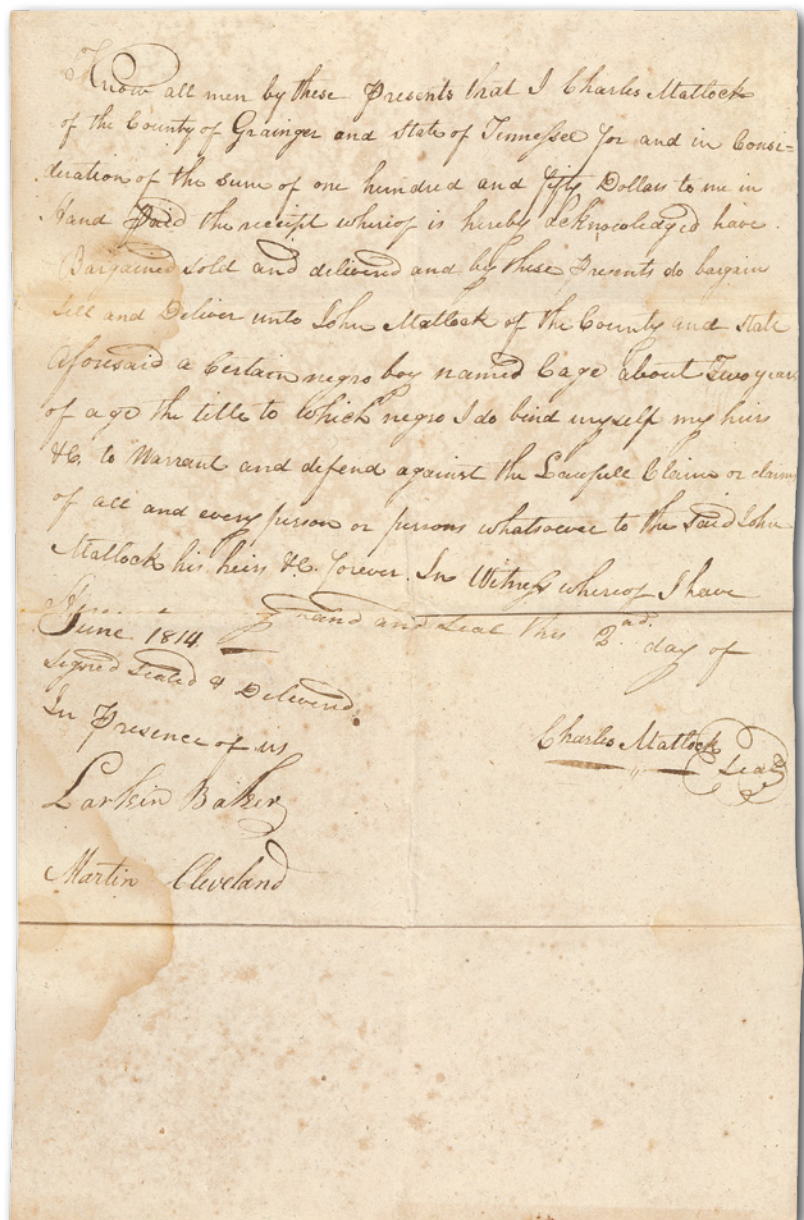 Know all men by these Presents that I Charles Matlock
of the County of Grainger and state of Tennessee for and in Consi=
deration of the sum of one hundred and fifty Dollars to me in
Hand Paid the receipt whereof is hereby acknowledged have
Bargained sold and delivered and by these Presents do bargain
sell and Deliver unto John Matlock of the County and state
Aforesaid a Certain negro boy named Cage about Two years
of age the title to which negro I do bind myself my heirs
&C. to Warrant and defend against the Lawfull Claim or claims
of all and every person or persons whatsoever to the said John
Matlock his heirs &C. forever. In Witness whereof I have
hand and seal this 2nd. day of
June 1814.
Signed Sealed & Delivered
In Presence of us
Charles Matlock Seal
Larkin Baker
Martin Cleveland